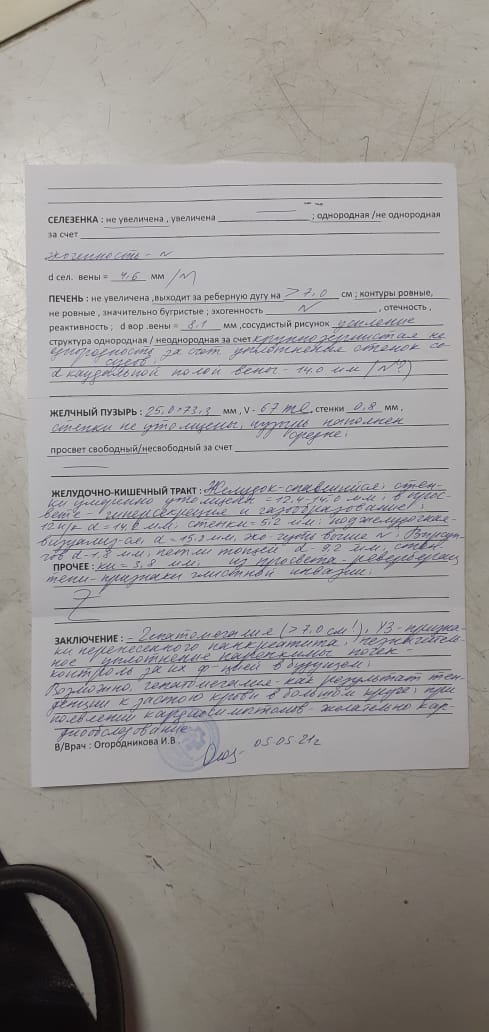 СЕЛЕЗЕНКА : не увеличена , увеличена ; однородная /не однородная
за счет
эхогенность - N
d сел. вены = 4,6 мм /N
ПЕЧЕНЬ : не увеличена ,выходит за реберную дугу на > 7,0 см ; контуры ровные,
не ровные , значительно бугристые ; эхогенность N , отечность ,
реактивность ; d вор .вены = 8,1 мм ,сосудистый рисунок усиление
структура однородная / неоднородная за счет крупнозернистая не
однородность за счет уплотнения стенок со
судов
d каудальной полой вены - 14,0 мм (N?)
ЖЕЛЧНЫЙ ПУЗЫРЬ : 25,0*73,3 мм , V - 67 ml, стенки 0,8 мм ,
стенки не утолщены, пузырь наполнен
средне;
просвет свободный/несвободный за счет
ЖЕЛУДОЧНО-КИШЕЧНЫЙ ТРАКТ : Желудок-спавшийся; стен-
ки умеренно утолщены = 12,4-14,0 мм; в прос-
вете - гиперсекреция и газообразование;
12 п/к d = 14,8 мм; стенки - 5,2 мм; поджелудочная-
визуализ-ся, d = 15,2 мм, эхо-густь выше N;
d - 1,3 мм; петли тощей d - 9,2 мм, стен
ПРОЧЕЕ : ки = 3,8 мм; из просвета - реверберац
тени - признаки глистной инвазии;
Z
ЗАКЛЮЧЕНИЕ : - Гепатомегалия (> 7,0 см), УЗ-призна-
ки перенесенного панкреатита;
ное уплотнение паренхимы почек
контроль за их ф-цией в будущем;
Возможно, гепатомегалия - как результат тен-
денции к застою крови в большом круге; при
появлении кардиосимптомов - желательно кар-
диообследование
В/Врач : Огородникова И.В . 05.05.21г